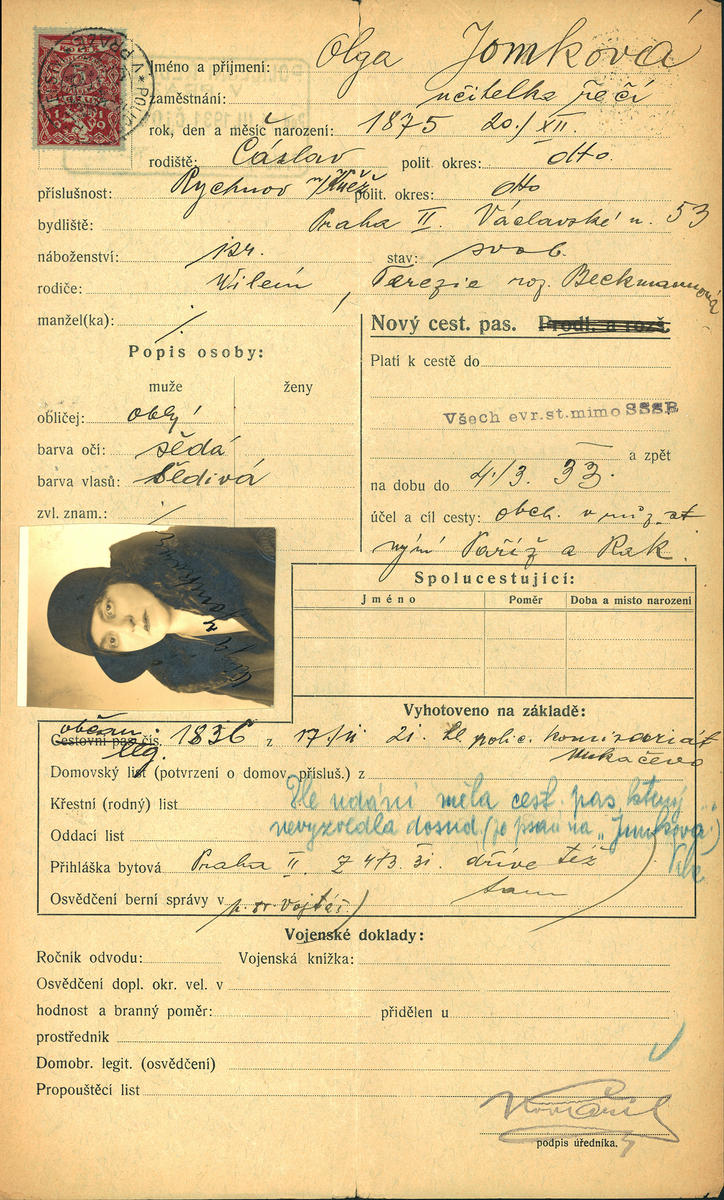 Jméno a příjmení: Olga Jomková
zaměstnání: učitelka řečí
rok, den a měsíc narození: 1875 20./XII.
rodiště: Čáslav polit. okres: dtto.
příslušnost: Rychnov n/Kněž polit. okres: dtto
bydliště: Praha II. Václavské n. 53
náboženství: izr. stav: svob.
rodiče: Vilém, Terézie roz. Beckmannová
manžel(ka): /
Nový cest. pas. Prodl. a rozš.
Popis osoby:
Platí k cestě do
muže ženy
Všech evr.st.mimo SSSR
obličej: oblý
barva očí: šedá
a zpět
barva vlasů: šedivá
na dobu do 4./3. 33.
zvl. znam.: /
účel a cíl cesty: obch. v
nyní Paříž a Rak.
Spolucestující:
Jméno Poměr Doba a místo narození
Olga Jomková
Vyhotoveno na základě:
občan. leg.
Cestovní pas čís. 1836 z 17./II 21. polic. komisariát
Mukačevo
Domovský list (potvrzení o domov. přísluš.) z
Křestní (rodný) list Dle udání měla cest. pas, který
nevyzvedla dosud (je psán na „Jomkova“)
Oddací list
Přihláška bytová Praha II. z 4/3. 31. dříve též
tam
Osvědčení berní správy v
Vojenské doklady:
Ročník odvodu: Vojenská knížka:
Osvědčení dopl. okr. vel. v
hodnost a branný poměr: přidělen u
prostředník
Domobr. legit. (osvědčení)
Propouštěcí list
podpis úředníka.